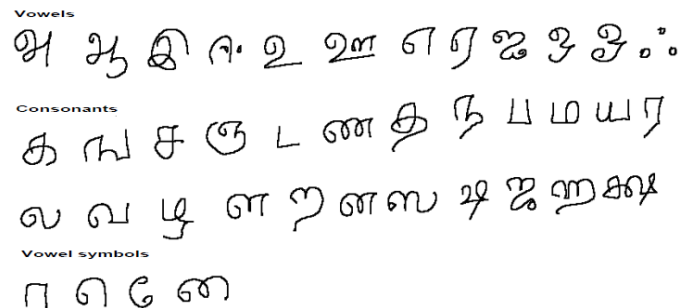 Vowels
அ ஆ இ ஈ உ ஊ எ ஏ ஐ ஒ ஓ ஃ
Consonants
க ங ச ஞ ட ண த ந ப ம ய ர
ல வ ழ ள ற ன ஸ ஷ ஜ ஹ க்ஷ
Vowel symbols
ா ெ ே ை